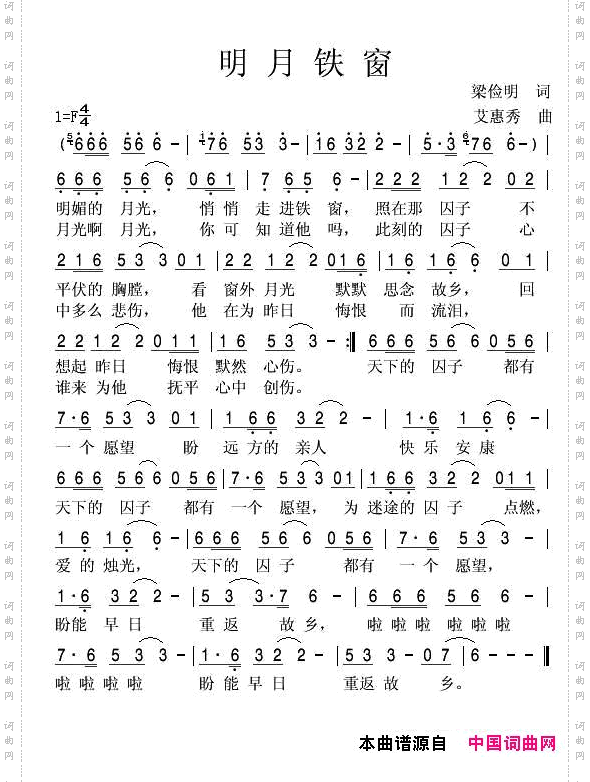 明月铁窗
梁俭明 词
1=F 4/4
艾惠秀 曲
(⁵⁄₄666 566 6- | ¹⁄₇76 53 3- | 16 322 2- | 5·3 ⁶⁄₄76 6-) |
666 566 061 | 7 65 6- | 222 122 02 |
明媚的 月光， 悄悄 走进铁窗， 照在那 囚子 不
月光啊 月光， 你可 知道他吗， 此刻的 囚子 心
216 533 301 | 22 122 2016 | 16 166 01 |
平伏的 胸膛， 看 窗外 月光 默默 思念 故乡， 回
中多么 悲伤， 他 在为 昨日 悔恨 而 流泪，
22 122 2011 | 12 533 3- :|| 666 566 6056 |
想起 昨日 悔恨 默然 心伤。 天下的 囚子 都有
谁来 为他 抚平 心中 创伤。
7·6 533 01 | 166 322- | 1·6 166 0 |
一个 愿望 盼 远方的 亲人 快乐 安康
666 566 6056 | 7·6 533 301 | 166 122 2011 |
天下的 囚子 都有 一个 愿望， 为 迷途的 囚子 点燃，
16 166- | 666 566 056 | 7·6 533- |
爱的 烛光， 天下的 囚子 都有 一个 愿望，
1·6 322- | 53 3·7 6- | 66 56 66 |
盼能 早日 重返 故乡， 啦啦 啦啦 啦啦
7·6 533- | 1·6 322- | 533- 07 | 6--- ||
啦啦 啦啦 盼能 早日 重返 故 乡。
本曲谱源自 中国词曲网
词曲网
词曲网
词曲网
词曲网
词曲网
词曲网
词曲网
词曲网
词曲网
词曲网
词曲网
词曲网
词曲网
词曲网